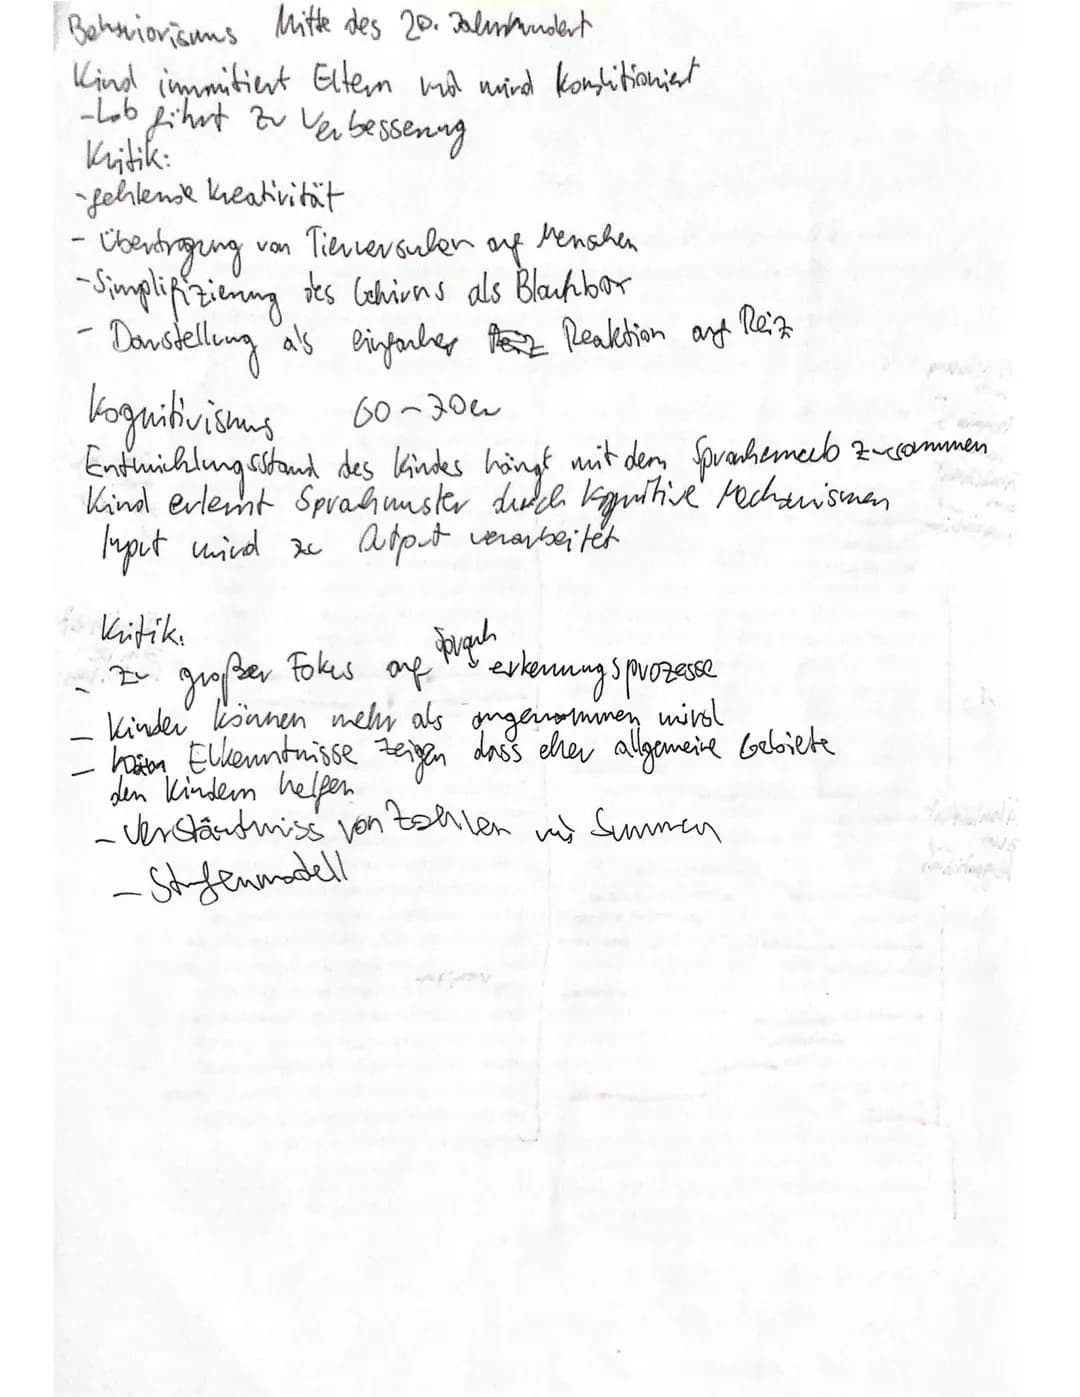 Behaviorismus Mitte des 20. Jahrhundert
Kind immitiert Eltern und wird konditioniert
- Lob führt zu Verbesserung
Kritik:
- fehlende Kreativität
- Übertragung von Tierversuchen auf Menschen
- Simplifizierung des Gehirns als Blackbox
- Darstellung als einfacher Reaktion auf Reiz
Kognitivismus 60-70er
Entwicklungsstand des Kindes hängt mit dem Spracherwerb zusammen
Kind erlernt Sprachmuster durch kognitive Mechanismen
Input wird zu Output verarbeitet
Kritik:
- Zu großer Fokus auf Spracherkennungsprozesse
- Kinder können mehr als angenommen wird
- Erkenntnisse zeigen dass eher allgemeine Gebiete
den Kindern helfen
- Verständniss von Zahlen und Summen
- Stufenmodell